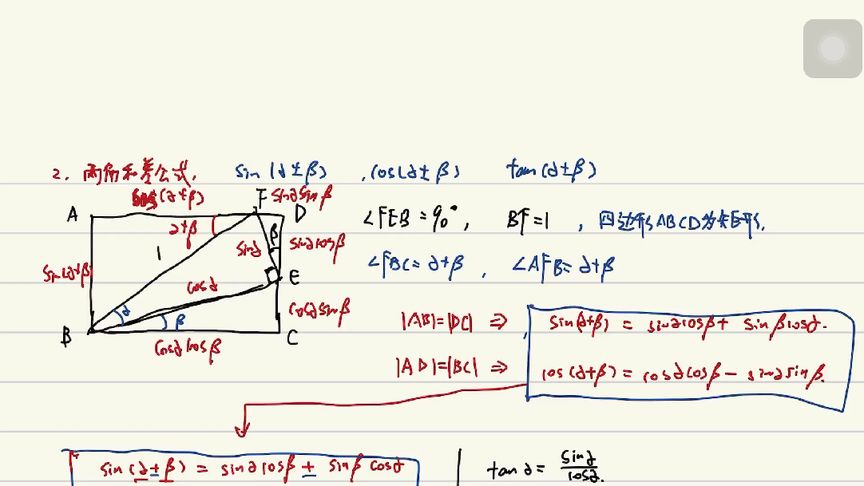 2. 两角和差公式, sin(α±β) , cos(α±β) tan(α±β)
cos(α+β) F sinαsinβ
A D
α+β β
1 sinα sinαcosβ
sin(α+β) cosα E
α β cosαsinβ
B C
cosαcosβ
∠FEB=90°, BF=1, 四边形ABCD为矩形.
∠FBC=α+β, ∠AFB=α+β
|AB|=|DC| ⇒ sin(α+β) = sinαcosβ + sinβcosα.
|AD|=|BC| ⇒ cos(α+β) = cosαcosβ - sinαsinβ.
sin(α±β) = sinαcosβ ± sinβcosα
tanα = sinα/cosα.